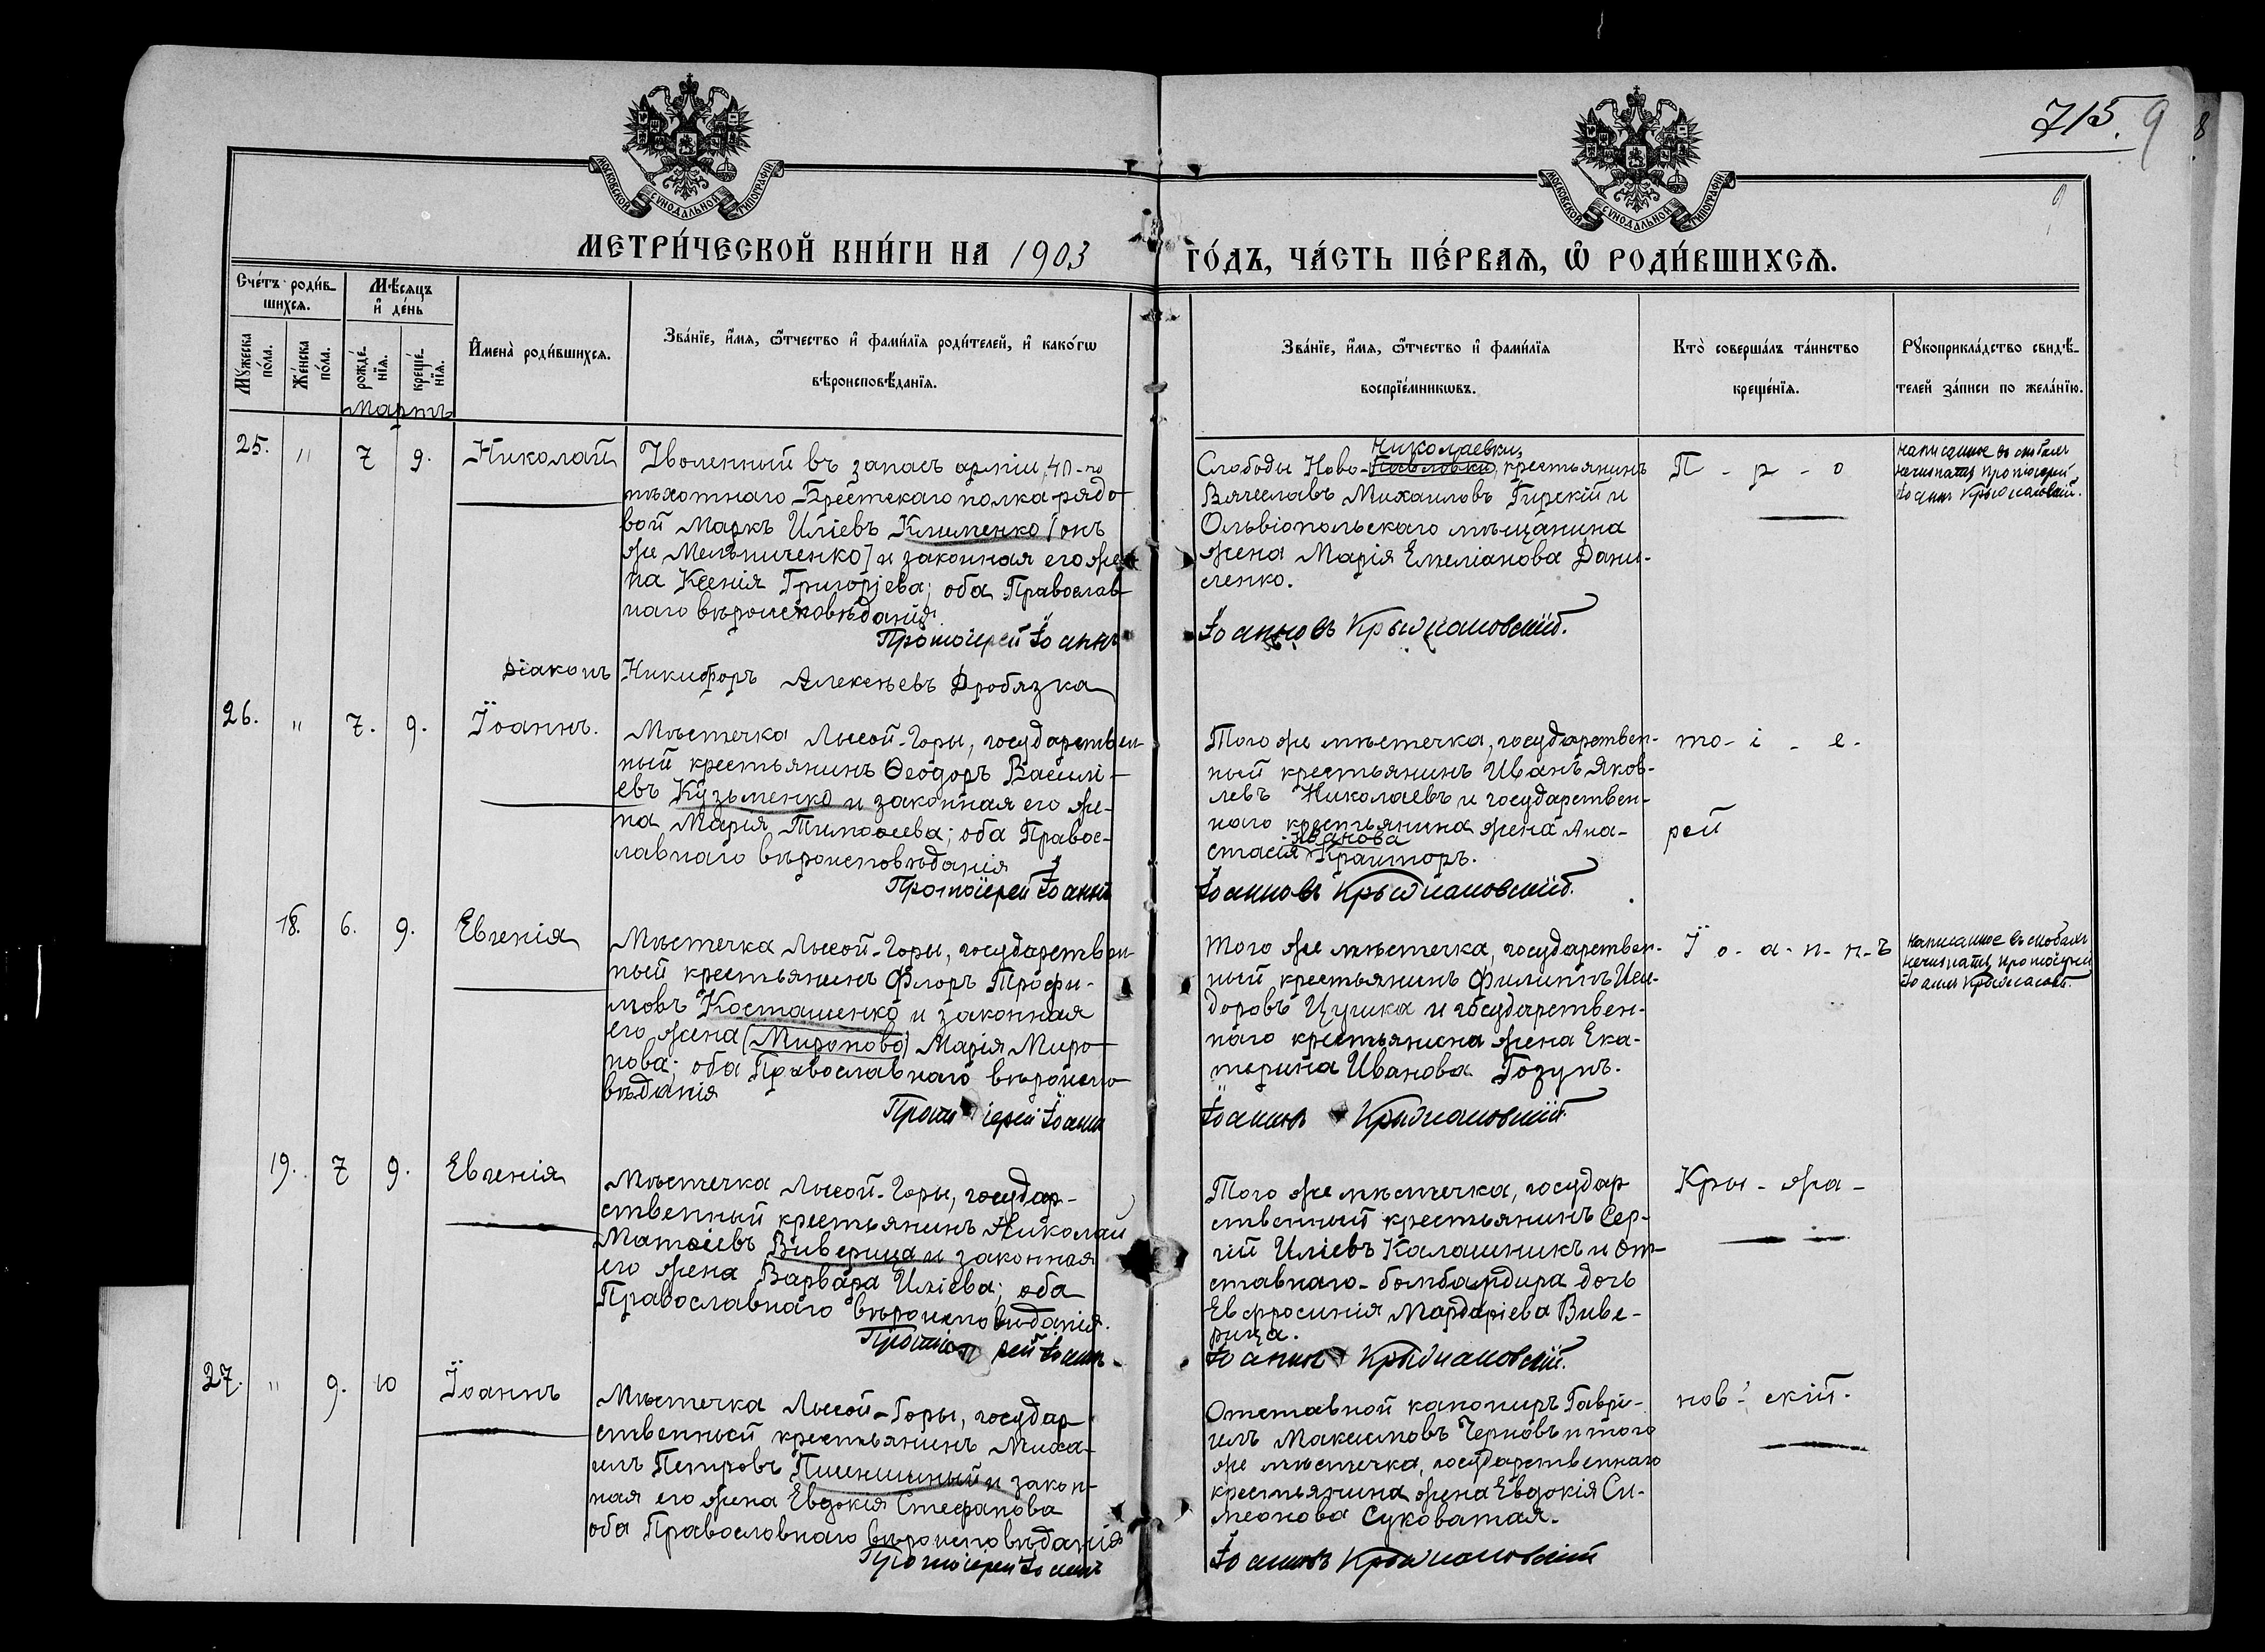 715. 9
8
МОСКОВСКОЙ СѴНОДАЛЬНОЙ ТИПОГРАФІИ
МОСКОВСКОЙ СѴНОДАЛЬНОЙ ТИПОГРАФІИ
МЕТРИ́ЧЕСКОЙ КНИ́ГИ НА 1903 ГО́ДЪ, ЧА́СТЬ ПЕ́РВАѦ, Ѡ РОДИ́ВШИХСѦ.
Сче́тъ роди́в-
шихсѧ.
Мꙋ́жеска по́ла.
Же́нска по́ла.
Мѣ́сѧцъ
и҆ де́нь
рожде́-
нїѧ.
креще́-
нїѧ.
И҆мена̀ роди́вшихсѧ.
Зва́нїе, и҆́мѧ, ѻ҆́тчество и҆ фами́лїѧ роди́телей, и҆ како́гѡ
вѣроисповѣ́данїѧ.
Зва́нїе, и҆́мѧ, ѻ҆́тчество и҆ фами́лїѧ
воспрїе́мникѡвъ.
Кто̀ соверша́лъ та́инство
креще́нїѧ.
Рꙋкоприкла́дство свидѣ́-
телей за́писи по жела́нїю.
Мартъ
25. " 7 9. Николай
Уволенный въ запасъ арміи, 40-го
пѣхотнаго Брестскаго полка рядо-
вой Маркъ Иліевъ Клименко [онъ
же Мельниченко] и законная его же-
на Ксенія Григорьева; оба Православ-
наго вѣроисповѣданія.
Протоіерей Іоаннъ
Діаконъ Никифоръ Алексѣевъ Дробязка
Николаевки,
Слободы Ново-Павловки, крестьянинъ
Вячеславъ Михаиловъ Гирскій и
Ольвіопольскаго мѣщанина
жена Марія Емеліанова Дани-
сленко.
Іоанновъ Крыжановскій.
П - р - о
Написанное въ скобкахъ
нечитать Протоіерей
Іоаннъ Крыжановскій.
26. " 7. 9. Іоаннъ.
Мѣстечка Лысой-Горы, государствен-
ный крестьянинъ Ѳеодоръ Василі-
евъ Кузьменко и законная его же-
на Марія Тимоѳеева; оба Правос-
лавнаго вѣроисповѣданія
Протоіерей Іоаннъ
Того же мѣстечка, государствен-
ный крестьянинъ Иванъ Яков-
левъ Николаевъ и государствен-
наго крестьянина жена Ана-
Иванова
стасія Крамторъ.
Іоанновъ Крыжановскій.
то - і - е -
рей
18. 6. 9. Евгенія
Мѣстечка Лысой-Горы, государствен-
ный крестьянинъ Флоръ Трофи-
мовъ Косташенко и законная
его жена (Миронова) Марія Миро-
нова; оба Православнаго вѣроиспо-
вѣданія
Протоіерей Іоаннъ
Того же мѣстечка, государствен-
ный крестьянинъ Филиппъ Иси-
доровъ Цушка и государствен-
наго крестьянина жена Ека-
терина Иванова Гозунъ.
Іоаннъ Крыжановскій
І о - а - н - н - ъ
Написанное въ скобкахъ
нечитать Протоіерей
Іоаннъ Крыжановск.
19. 7 9. Евгенія
Мѣстечка Лысой-Горы, государ-
ственный крестьянинъ Николай
Матѳіевъ Виверица и законная
его жена Варвара Иліева; оба
Православнаго вѣроисповѣданія.
Протоіерей Іоаннъ
Того же мѣстечка, государ
ственный крестьянинъ Сер-
гій Иліевъ Калашникъ и от-
ставнаго-бомбардира дочь
Евфросинія Мардаріева Виве-
рица.
Іоаннъ Крыжановскій.
Кры - жа -
27. " 9. 10 Іоаннъ
Мѣстечка Лысой-Горы, государ
ственный крестьянинъ Миха-
илъ Петровъ Пшеничный и закон-
ная его жена Евдокія Стефанова
оба Православнаго вѣроисповѣданія
Протоіерей Іоаннъ
Отставной канониръ Гаврі-
илъ Максимовъ Черновъ и того
же мѣстечка, государственнаго
крестьянина жена Евдокія Си-
меонова Суковатая.
Іоанновъ Крыжановскій
нов - скій.